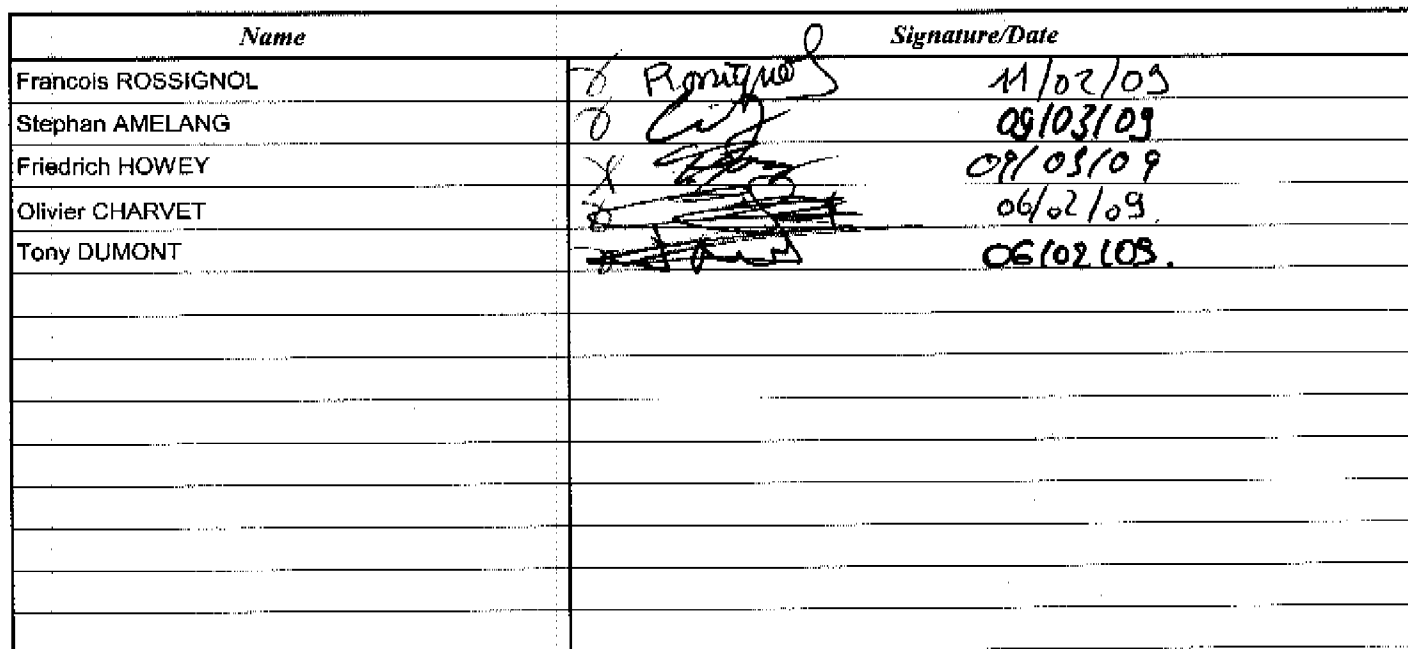 Name Signature/Date
Francois ROSSIGNOL Rossignol 11/02/09
Stephan AMELANG 09/03/09
Friedrich HOWEY 09/03/09
Olivier CHARVET 06/02/09.
Tony DUMONT 06/02/09.